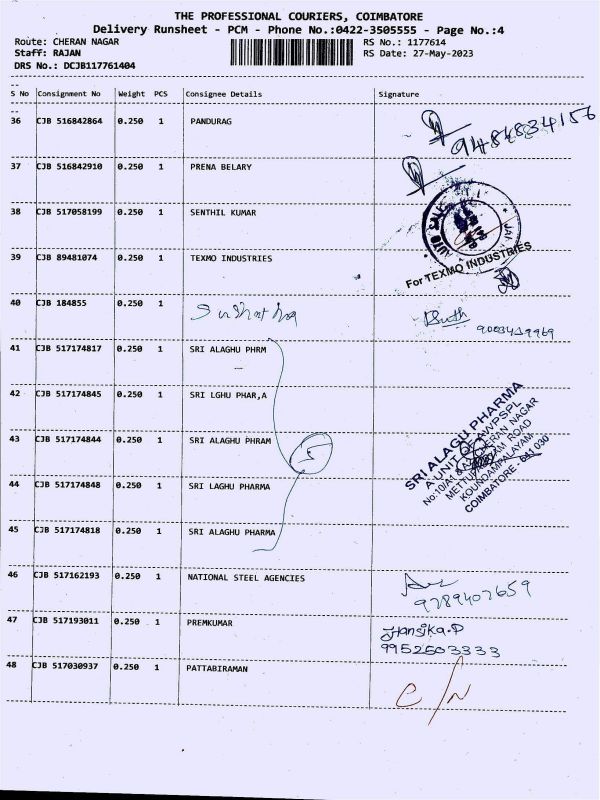 THE PROFESSIONAL COURIERS, COIMBATORE
Delivery Runsheet - PCM - Phone No.:0422-3505555 - Page No.:4
Route: CHERAN NAGAR RS No.: 1177614
Staff: RAJAN RS Date: 27-May-2023
DRS No.: DCJB117761404
S No Consignment No Weight PCS Consignee Details Signature
36 CJB 516842864 0.250 1 PANDURAG 9484834156
37 CJB 516842910 0.250 1 PRENA BELARY
38 CJB 517058199 0.250 1 SENTHIL KUMAR
39 CJB 89481074 0.250 1 TEXMO INDUSTRIES For TEXMO INDUSTRIES
40 CJB 184855 0.250 1
41 CJB 517174817 0.250 1 SRI ALAGHU PHRM
42 CJB 517174845 0.250 1 SRI LGHU PHAR,A
43 CJB 517174844 0.250 1 SRI ALAGHU PHRAM
44 CJB 517174848 0.250 1 SRI LAGHU PHARMA
45 CJB 517174818 0.250 1 SRI ALAGHU PHARMA
SRI ALAGU PHARMA
A UNIT OF AWPSPL
CHERAN NAGAR
ROAD
KOUNDAMPALAYAM
COIMBATORE - 641 030
46 CJB 517162193 0.250 1 NATIONAL STEEL AGENCIES
9789407659
47 CJB 517193011 0.250 1 PREMKUMAR Hansika.P
9952603333
48 CJB 517030937 0.250 1 PATTABIRAMAN C/N